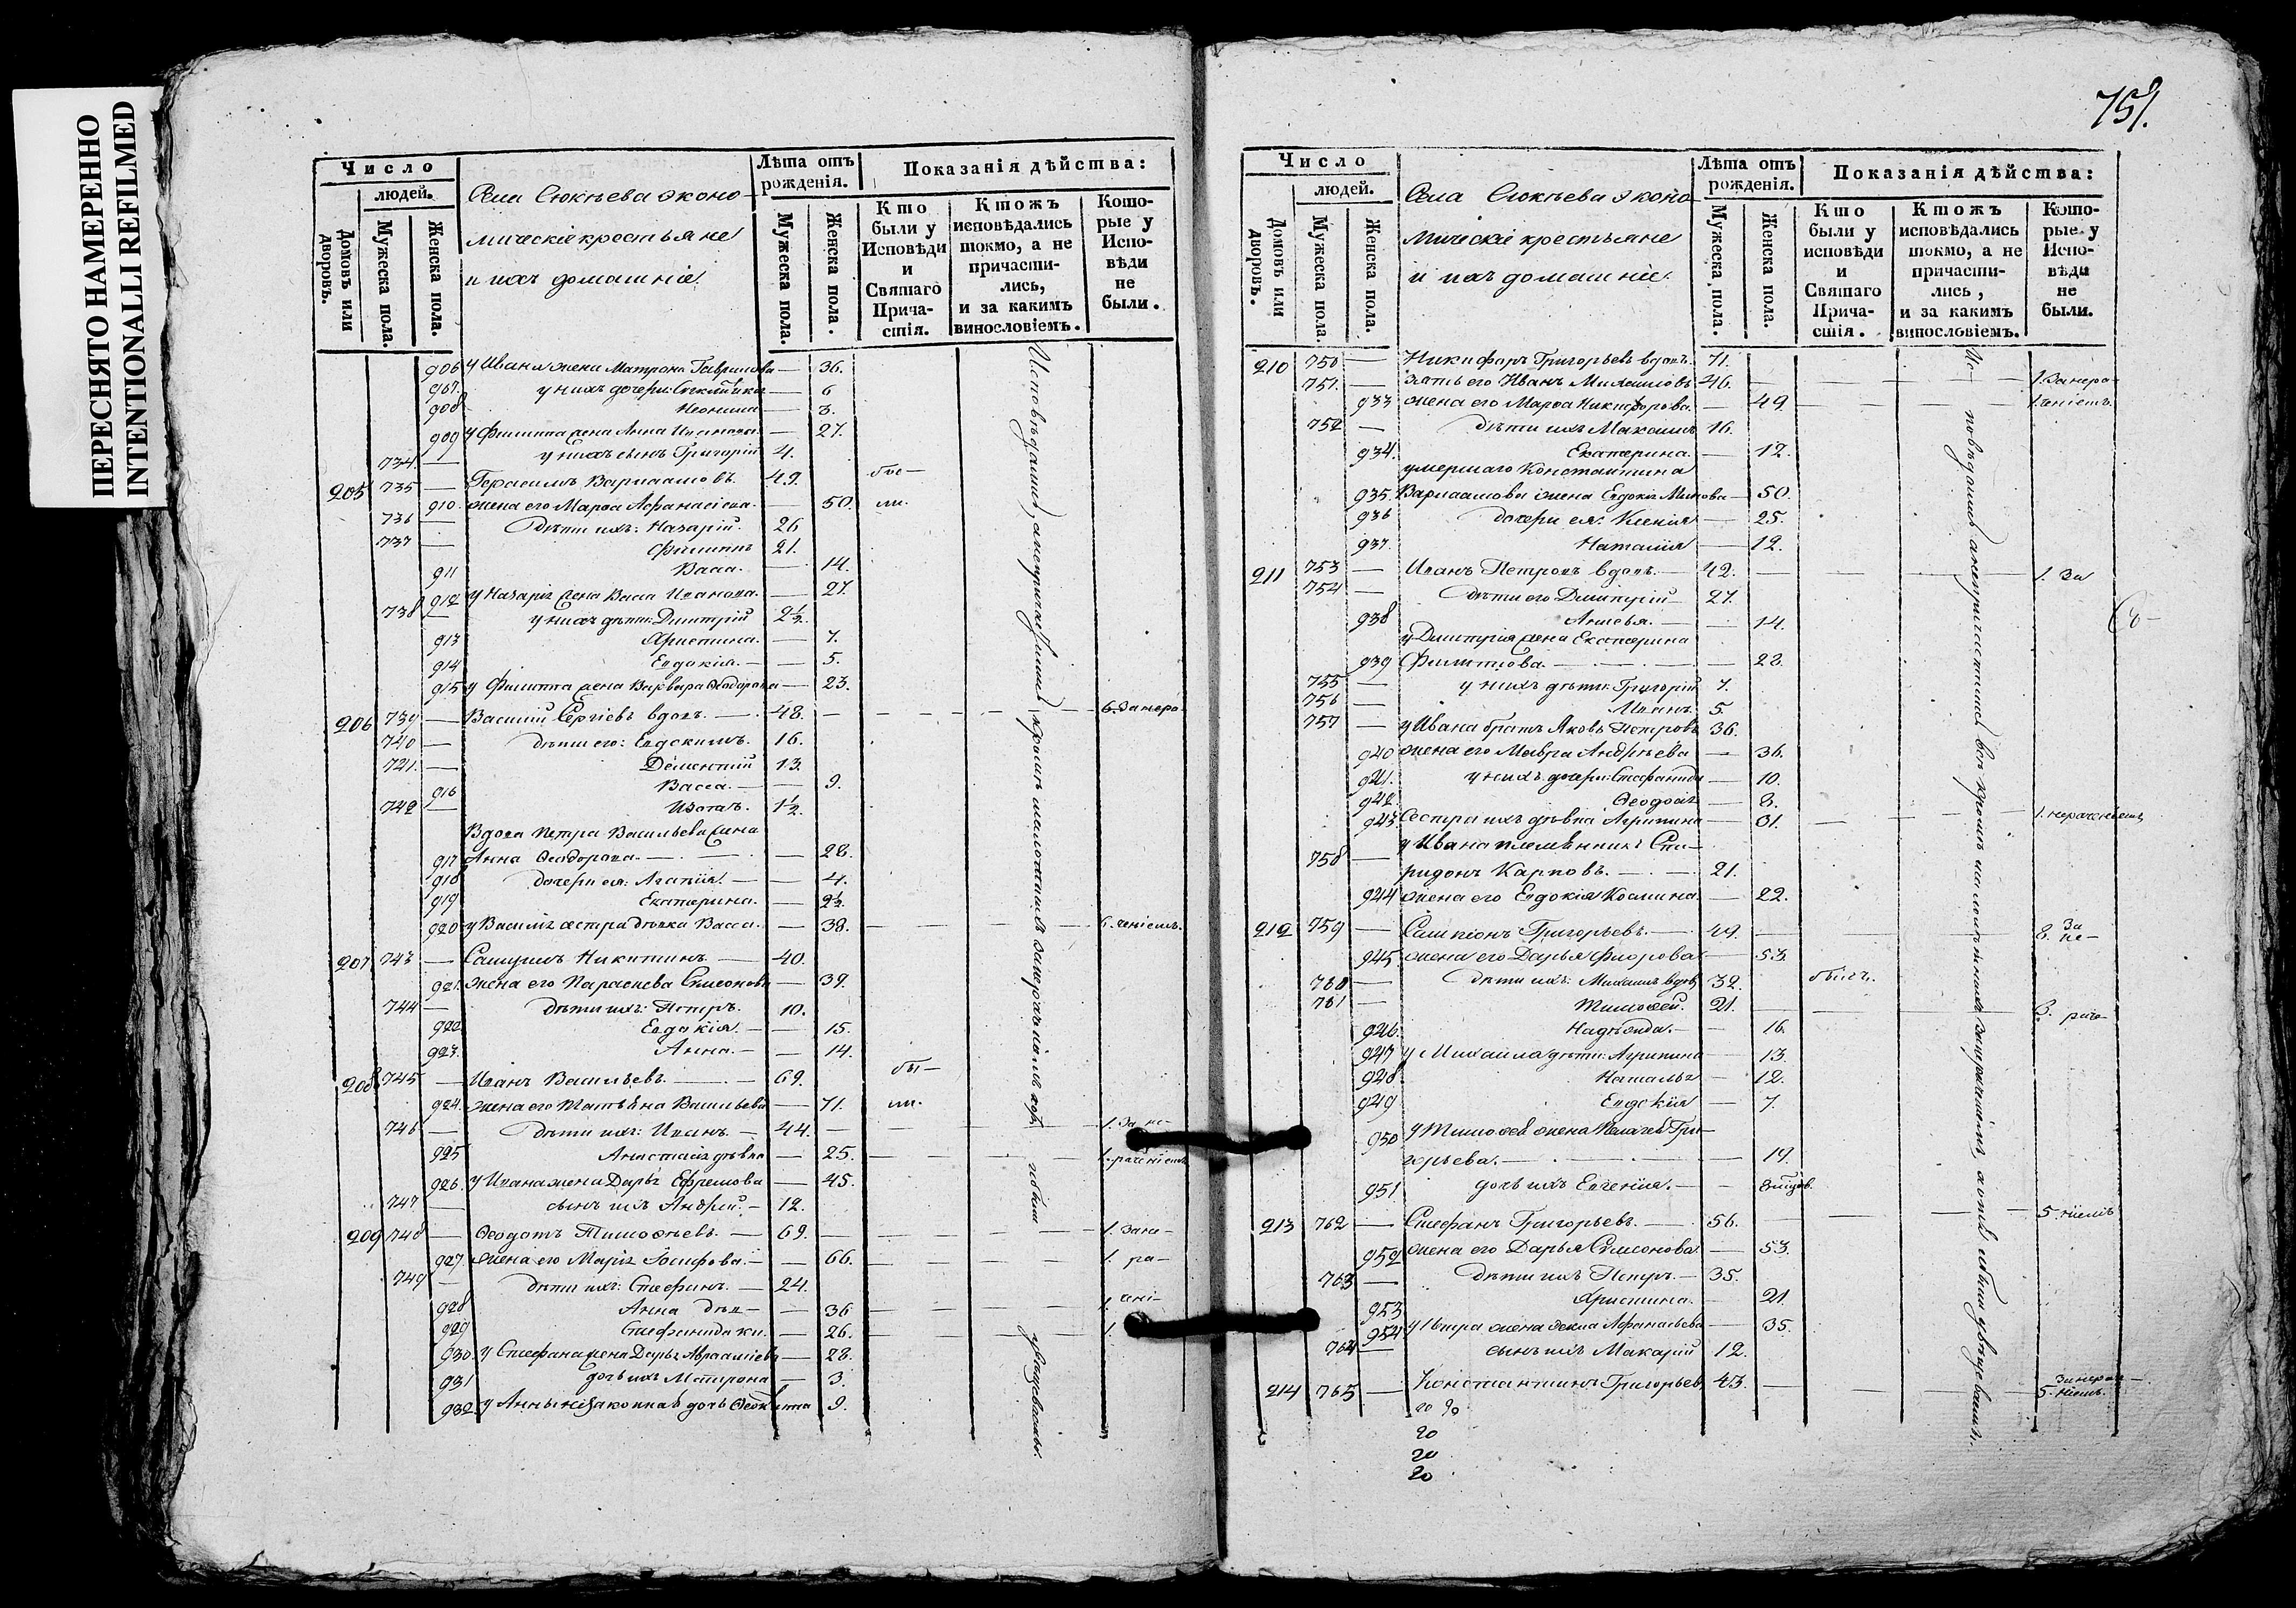 ПЕРЕСНЯТО НАМЕРЕННО
INTENTIONALLI REFILMED
Число
людей.
Домовъ или дворовъ.
Мужеска пола.
Женска пола.
Села Сюкѣева эконо-
мическіе крестьяне
и ихъ домашніе.
Лѣта отъ рожденія.
Мужеска пола.
Женска пола.
Показанія дѣйства:
Кто были у Исповѣди и Святаго Прича-стія.
Ктожъ исповѣдались токмо, а не причасти-лись, и за какимъ винословіемъ.
Кото-рые у Испо-вѣди не были.
906 у Ивана жена Матрона Гаврилова — 36.
907. у нихъ дочери: — 6
908 — 3.
909 у Филиппа жена Анна — 27.
734. — у нихъ сынъ Григорій 4.
205 735 — Герасимъ Варлаамовъ. 49. бы—
910. жена его Марѳа Аѳанасіева. — 50. ли.
736 — дѣти ихъ: Назарій. 26
737 — Филиппъ 21.
911 Васса. — 14.
912 у Назарія жена Васса Иванова. — 27.
738 — у нихъ дѣти: Димитрій 2½.
913 Христина. — 7.
914 Евдокія. — — 5.
915 у Филиппа жена Варвара Ѳеодорова — 23.
206 739 — Василій Сергіевъ вдовъ. — 48. — — — — — 6. За нера
740 — дѣти его: Евдокимъ. 16.
721. — Дементій 13.
916 Васса. — — 9.
742 — Изотъ. 1½.
Вдова Петра Васильева жена
917 Анна Ѳеодорова. — — — 28.
918 дочери ея: Агапія. — — 4.
919 Екатерина. — 2½.
920 у Василія сестра дѣвка Васса. — 38. — — — — 6. ченіемъ.
207 743 — Самуилъ Никитинъ — 40.
921. жена его Параскева Симеонова — 39.
744 — дѣти ихъ: Петръ. 10.
922 Евдокія. — — 15.
923. Анна. — — 14.
208 745 — Иванъ Васильевъ. — — 69. бы—
924. жена его Татьяна Васильева — 71. ли.
746 — дѣти ихъ: Иванъ. — 44. — — — — 1. За не-
925 Анастасія дѣвка — 25. — — — — 1. раченіемъ
926. у Ивана жена Дарья Ефремова — 45.
747 — сынъ ихъ Андрей. — 12.
209 748 — Ѳеодотъ Тимоѳеевъ. — 69. — — — — 1. За не-
927. жена его Марія Іосифова. — — 66. — — — — 1. ра—
749 — дѣти ихъ: Стефанъ. — 24.
928 Анна дѣв— — 36 — — — — 1. чені—
929 Стефанида ки. — 26. — — — — 1.
930. у Стефана жена Дарья Авраамова — 28.
931 дочь ихъ Матрона — 3.
932. у Анны незаконная дочь — 9.
Исповѣдались, а не причастились кромѣ малолѣтнихъ за нераченіемъ
увѣщеваемы.
751.
Число
людей.
Домовъ или дворовъ.
Мужеска пола.
Женска пола.
Села Сюкѣева эконо-
мическіе крестьяне
и ихъ домашніе.
Лѣта отъ рожденія.
Мужеска пола.
Женска пола.
Показанія дѣйства:
Кто были у исповѣди и Святаго Прича-стія.
Ктожъ исповѣдались токмо, а не причасти-лись, и за какимъ винословіемъ.
Кото-рые у Испо-вѣди не были.
210 750 — Никифоръ Григорьевъ вдовъ. 71.
751. — зять его Иванъ Михаиловъ 46. — — — — 1. За нера-
933 жена его Марѳа Никифорова. — 49. — — — — 1. ченіемъ.
752 — дѣти ихъ Максимъ 16.
934. Екатерина. — 12.
умершаго Константина
935. Варлаамова жена Евдокія — 50.
936 дочери ея: Ксенія — 25.
937. Наталія — 12.
211 753 — Иванъ Петровъ вдовъ. — 42. — — — — 1. За
754 — дѣти его Димитрій — 27.
938 — 14.
у Димитрія жена Екатерина
939 Филиппова. — — — — 28.
755 — у нихъ дѣти: Григорій 7.
756 — Иванъ. 5.
757 — у Ивана братъ Яковъ Петровъ 36.
940 жена его Мавра Андреева — 36.
941. у нихъ дочери: Стефанида — 10.
942. Ѳеодосія — 8.
943. Сестра ихъ дѣвка Агрипина — 31. — — — — 1. нераченіемъ
758 — у Ивана племянникъ Спи—
ридонъ Карповъ. — — 21.
944 жена его Евдокія Козмина. — 22.
212 759 — Сампсонъ Григорьевъ. — 49. — — — — 8. За не—
945. жена его Дарья Флорова — 53.
760 — дѣти ихъ: Михаилъ вдов. 32. былъ.
761 — Тимоѳей. 21. — — — — 8. раче—
926. Надежда. — — 16.
927 у Михаила дѣти: Агрипина — 13.
928 Наталья — 12.
929 Евдокія — 7.
950 у Тимоѳея жена Пелагея Гри—
горьева. — — — — 19.
951 дочь ихъ Евгенія. — —
213 762 — Стефанъ Григорьевъ. — 56. — — — — 5. ніемъ
952 жена его Дарья Симонова. — 53.
763 — дѣти ихъ Петръ. — 35.
953 Христина. — 21.
954 у Петра жена Ѳекла Афанасьева — 35.
764 — сынъ ихъ Макарій 12.
214 765 — Константинъ Григорьевъ 43. — — — — 5. За нераче—ніемъ.
20
20
20
Исповѣдались а не причастились всѣ кромѣ малолѣтнихъ за нераченіемъ,